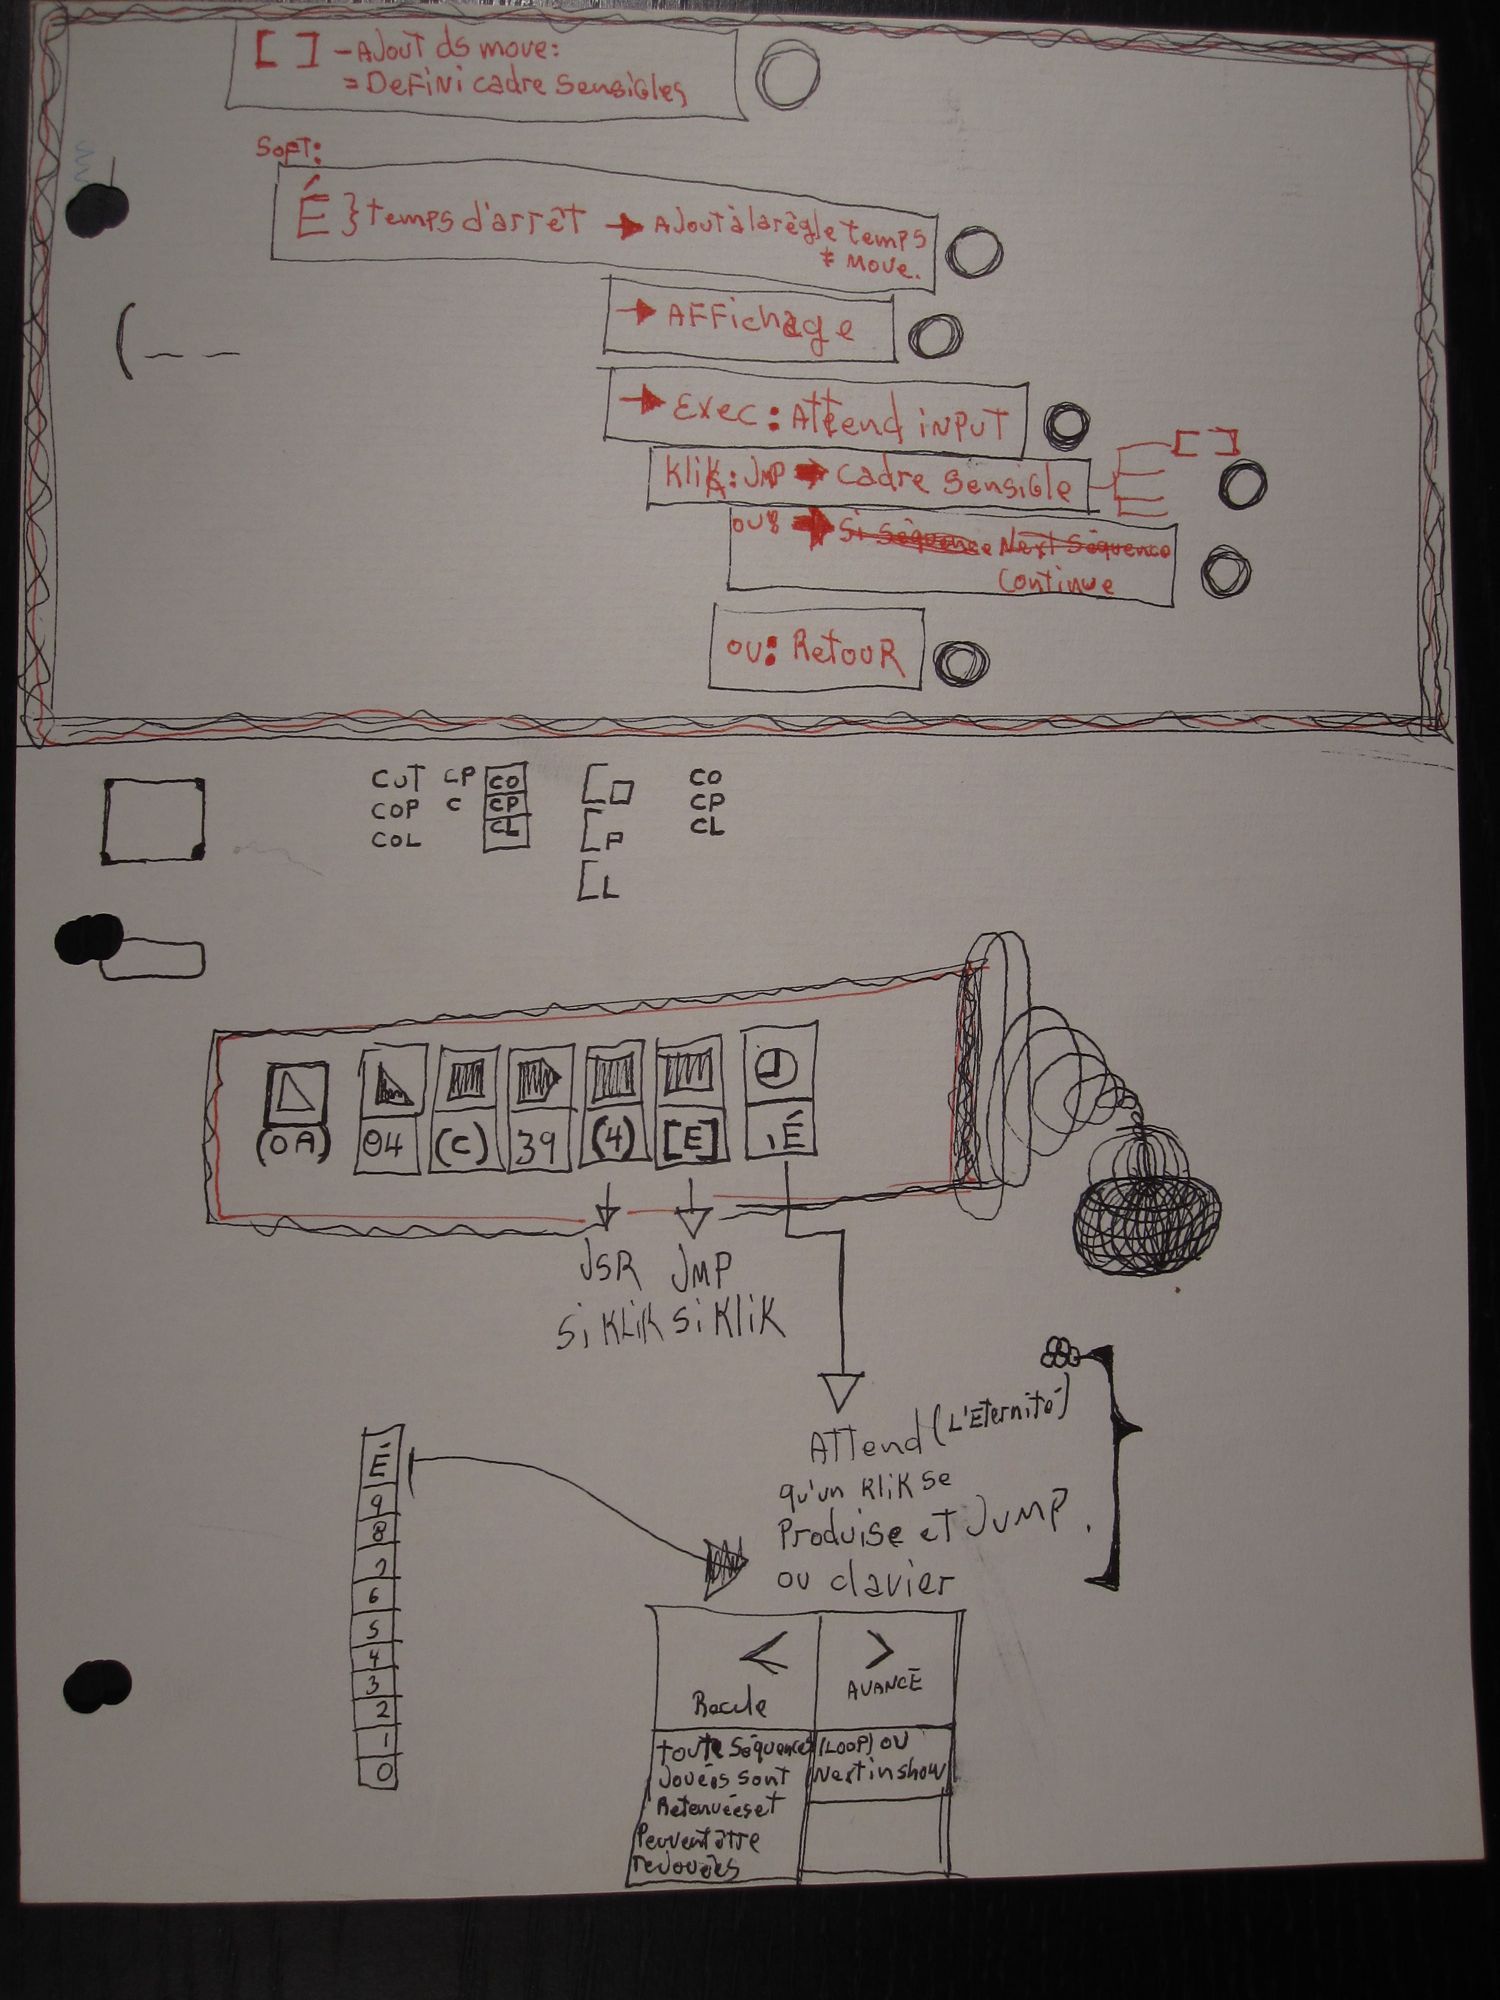 [ ] - AJout ds move:
= DeFiNi cadre Sensibles
SOFT:
É } temps d'arrêt → AJout à la règle temps
≠ MOVE.
→ AFFichage
→ Exec: Attend INPUT
KliK: JMP → Cadre Sensible [ ]
OU: → Si Séquence Next Séquence
Continue
OU: RetouR
CUT CP CO CO CO
COP C CP CP CP
COL CL CL CL
(0A) 04 (C) 39 (4) [E] ,É
JSR JMP
Si KLiK Si KliK
Attend (L'Eternité)
qu'un KliK se
Produise et JUMP.
ou clavier
É
9
8
7
6
5
4
3
2
1
0
< >
Recule AVANCE
toute Séquences (LOOP) OU
Jouées sont Next in show
Retenues et
Peuvent être
rejouées